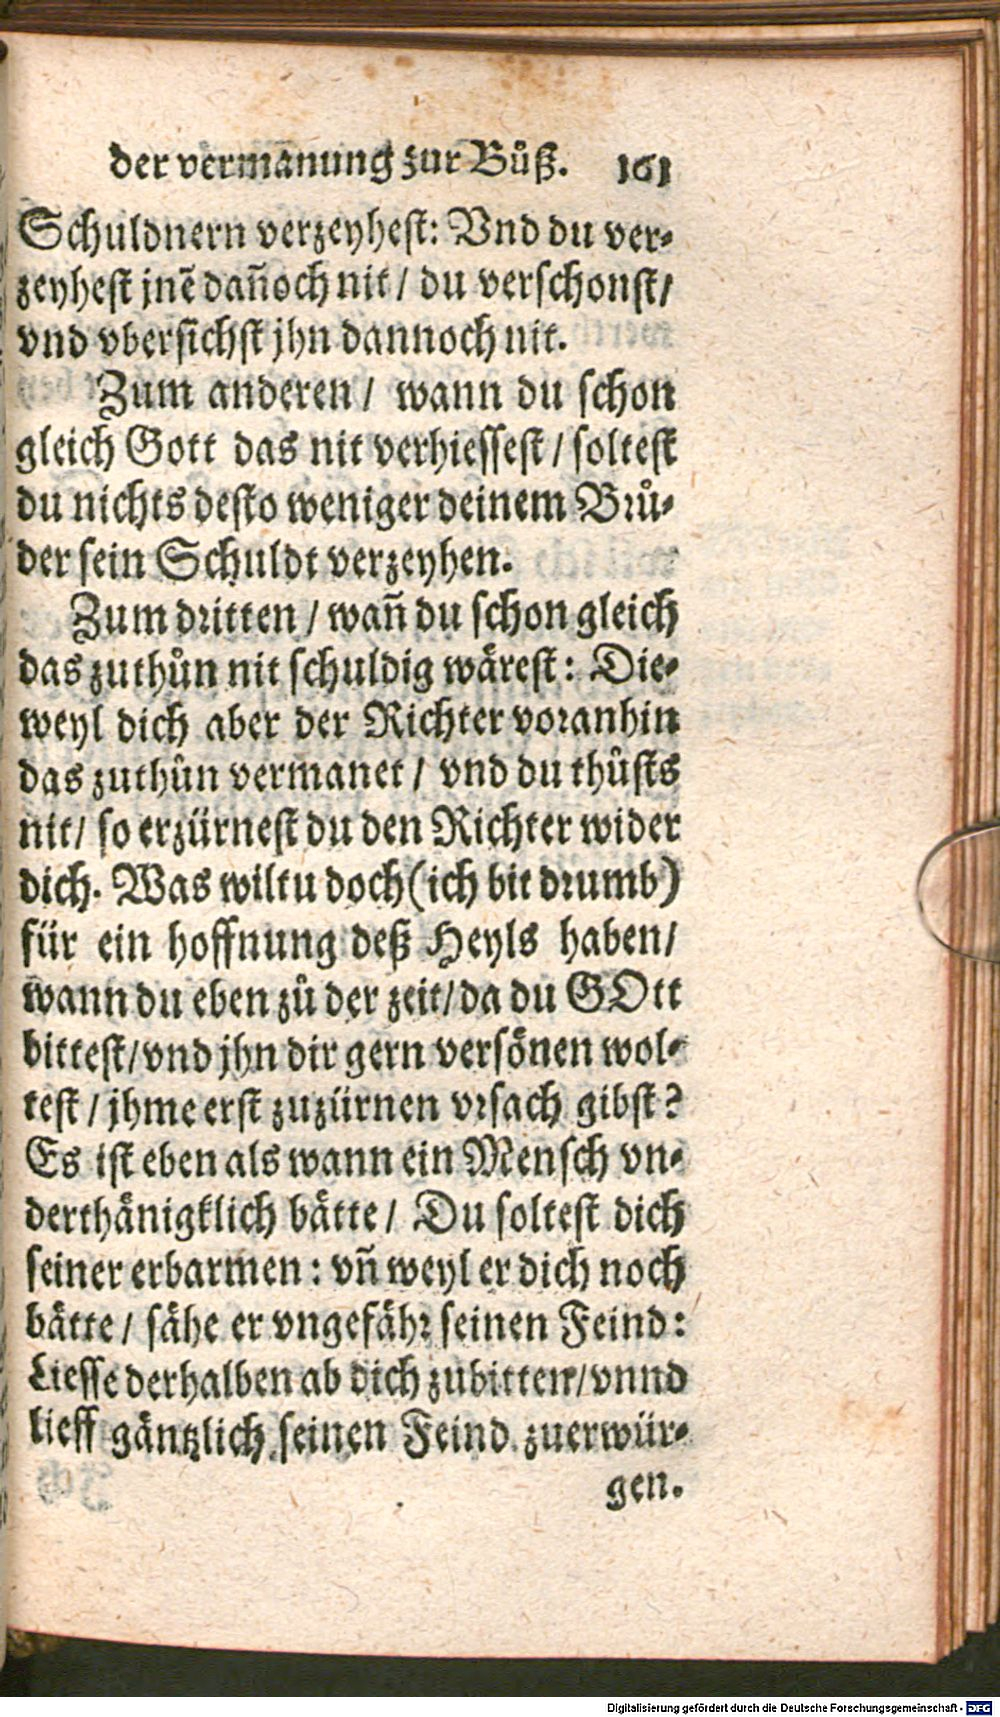 der vermanung zur Bůß. 161
Schuldnern verzeyhest: Vnd du ver⸗
zeyhest jnē dañoch nit / du verschonst /
vnd vbersichst jhn dannoch nit.
Zum anderen / wann du schon
gleich Gott das nit verhiessest / soltest
du nichts desto weniger deinem Brů⸗
der sein Schuldt verzeyhen.
Zum dritten / wañ du schon gleich
das zuthůn nit schuldig wärest: Die⸗
weyl dich aber der Richter voranhin
das zuthůn vermanet / vnd du thůsts
nit / so erzürnest du den Richter wider
dich. Was wiltu doch (ich bit drumb)
für ein hoffnung deß Heyls haben /
wann du eben zů der zeit / da du GOtt
bittest / vnd jhn dir gern versönen wol⸗
test / jhme erst zuzürnen vrsach gibst?
Es ist eben als wann ein Mensch vn⸗
derthänigklich bätte / Du soltest dich
seiner erbarmen: vñ weyl er dich noch
bätte / sähe er vngefähr seinen Feind:
Liesse derhalben ab dich zubitten / vnnd
lieff gäntzlich seinen Feind zuerwür⸗
gen.
Digitalisierung gefördert durch die Deutsche Forschungsgemeinschaft - DFG